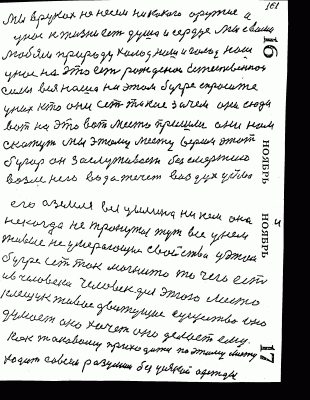 161
Мы в руках не несем никакого оружие а
у нас к жизни есть душа и сердце Мы с вами
любим природу холод наш и голод наш
у нас на это есть рождение Естественное
сила вся наша на этом бугре спросите
у них кто они есть такие зачем они сюда
вот на это вот место пришли они нам
скажут Мы этому месту верим этот
бугор он заслуживает бессмертие
возле него вода течет воздух
его а земля вся целина на ней она
никогда не тронута тут все у нем
живые не умирающие свойства у этом
бугре есть так магнито то чего есть
и в человека человек для этого место
живое движущее существо оно
думает оно хочет оно делает ему.
Как таковому приходит по этому месту
ходит совсем разумии без всякой одежды
16
НОЯБРЬ
НОЯБРЬ
17